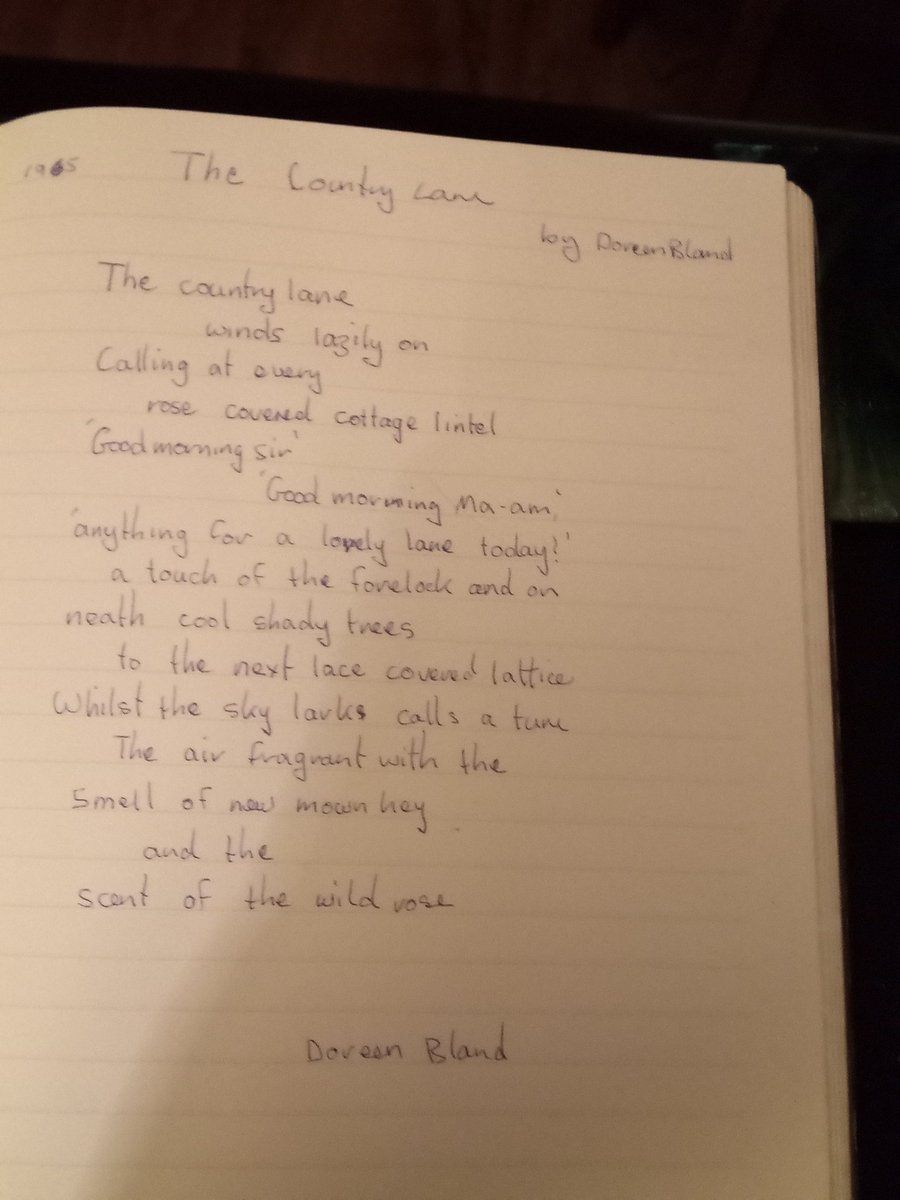 1965 The Country Lane
by Doreen Bland
The country lane
winds lazily on
Calling at every
rose covered cottage lintel
'Good morning sir'
'Good morning Ma-am,'
'anything for a lovely lane today?'
a touch of the forelock and on
neath cool shady trees
to the next lace covered lattice
Whilst the sky larks calls a tune
The air fragrant with the
Smell of new mown hey
and the
scent of the wild rose
Doreen Bland